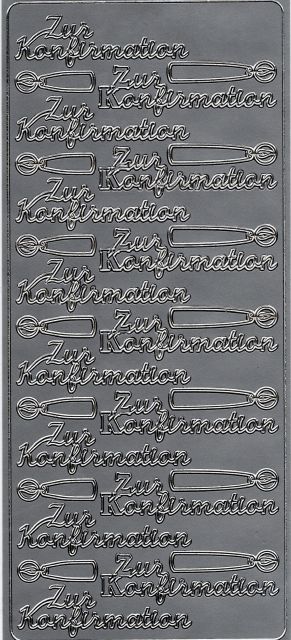 Zur
Konfirmation
Zur
Konfirmation
Zur
Konfirmation
Zur
Konfirmation
Zur
Konfirmation
Zur
Konfirmation
Zur
Konfirmation
Zur
Konfirmation
Zur
Konfirmation
Zur
Konfirmation
Zur
Konfirmation
Zur
Konfirmation
Zur
Konfirmation
Zur
Konfirmation
Zur
Konfirmation